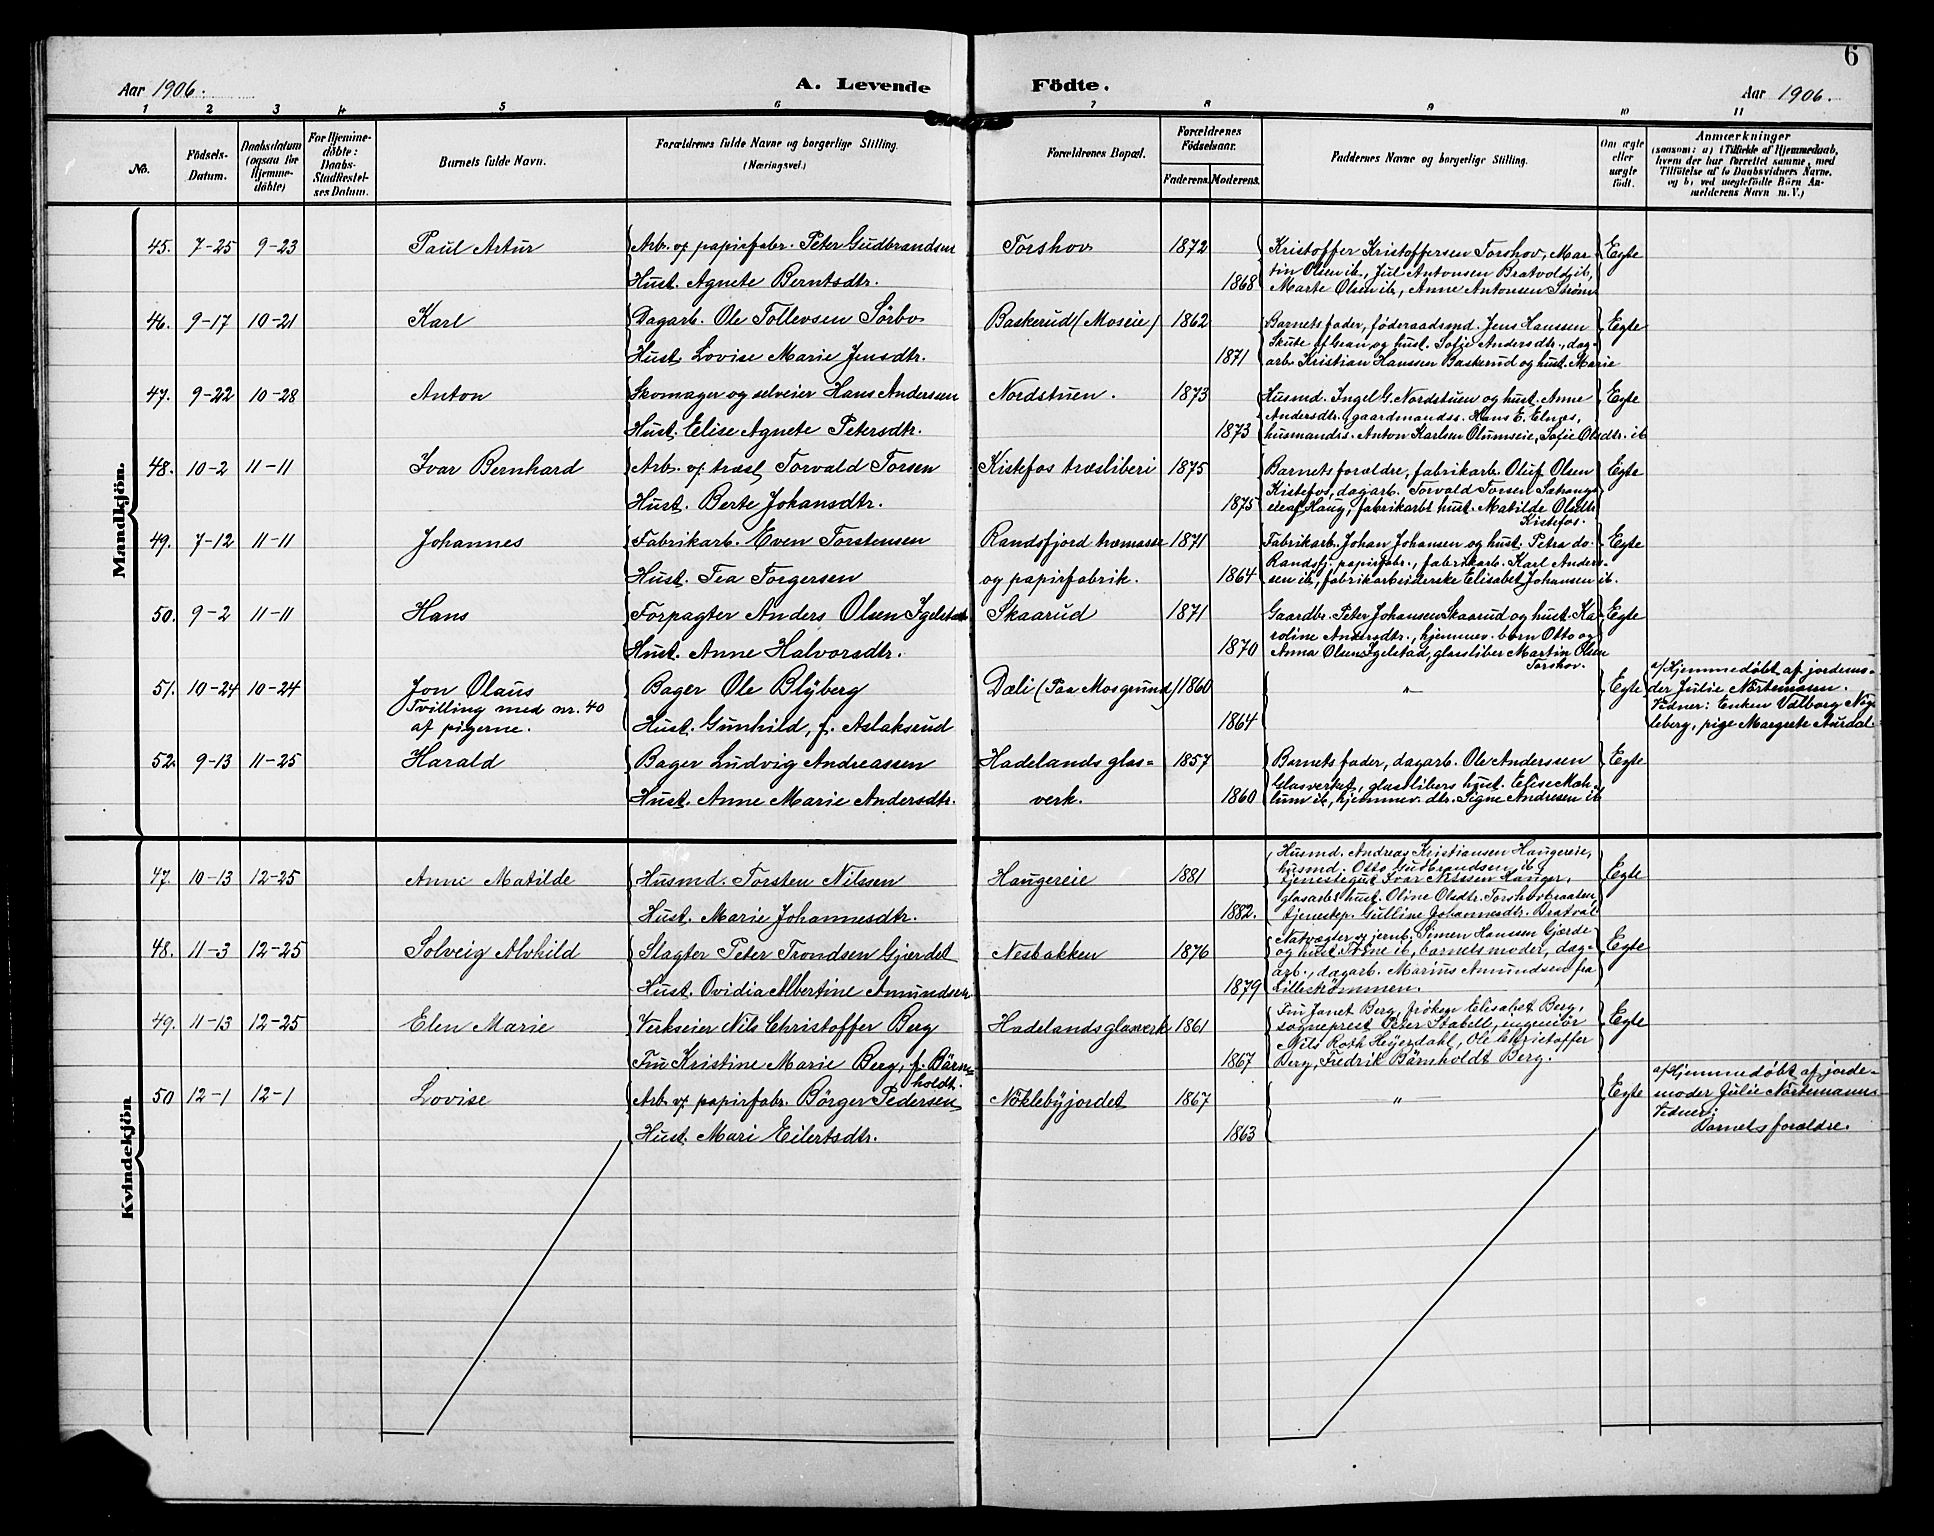 6
Aar 1906.
A. Levende Födte.
Aar 1906.
1 2 3 4 5 6 7 8 9 10 11
No.
Födsels-
Datum.
Daabsdatum
(ogsaa for
Hjemme-
döbte)
For Hjemme-
döbte:
Daabs-
Stadfæstel-
ses Datum.
Barnets fulde Navn.
Forældrenes fulde Navne og borgerlige Stilling.
(Næringsvei.)
Forældrenes Bopæl.
Forældrenes
Födselsaar.
Faderens. Moderens.
Faddernes Navne og borgerlige Stilling.
Om ægte
eller
uægte
født.
Anmærkninger
(saasom: a) i Tilfælde af Hjemmedaab,
hvem der har forrettet samme, med
Tilföielse af to Daabsvidners Navne,
og b) ved uægtefödte Börn An-
melderens Navn m. V.)
Mandkjön.
45. 7-25 9-23 Paul Artur
Arb. v/ papirfabr. Peter Gudbrandsen
Hust. Agnete Berntsdtr.
Torshov 1872
1868
Kristoffer Kristoffersen Torshov, Mar-
tin Olsen ib., Jul Antonsen Bratvold ib,
Marte Olsen ib., Anne Antonsen Strøm
Egte
46. 9-17 10-21 Karl
Dagarb. Ole Tollevsen Sörbo
Hust. Lovise Marie Jensdtr.
Baskerud (Moseie) 1862
1871
Barnets fader, föderaadsmd. Jens Hanssen
Skute af Gran, og hust. Sofie Andersdtr., dag-
arb. Kristian Hanssen Baskerud og hust. Marie
Egte
47. 9-22 10-28 Anton
Skomager og selveier Hans Anderssen
Hust. Elise Agnete Petersdtr.
Nordstuen. 1873
1873
Husmd. Ingel G. Nordstuen og hust. Anne
Andersdtr., gaardmandss. Hans E. Elnæs,
husmandss. Anton Karlsen Olumseie, Sofie Olsdtr. ib
Egte
48. 10-2 11-11 Ivar Bernhard
Arb. v/ træsl. Torvald Torsen
Hust. Berte Johansdtr.
Kistefos træsliberi 1875
1875
Barnets forældre, fabrikarb. Oluf Olsen
Kistefos, dagarb. Torvald Torsen Sætrangs-
eie af Haug, fabrikarbs hust. Matilde Olsdtr
Kistefos.
Egte
49. 7-12 11-11 Johannes
Fabrikarb. Even Torstensen
Hust. Tea Torgersen
Randsfjord træmasse
og papirfabrik.
1871
1864
Fabrikarb. Johan Johansen og hust. Petra do.
Randsfj. papirfabr., fabrikarb. Karl Anders-
sen ib, fabrikarbeiderske Elisabet Johansen ib.
Egte
50. 9-2 11-11 Hans
Forpagter Anders Olsen Igelstad
Hust. Anne Halvorsdtr.
Skaarud 1871
1870
Gaardbr. Peter Johansen Skaarud og hust. Ka-
roline Andersdtr., hjemmev. børn Otto og
Anna Olsen Igelstad, glassliber Martin Olsen
Torshov.
Egte
51. 10-24 10-24 Jon Olaus
Tvilling med nr. 40
af pigerne.
Bager Ole Blyberg
Hust. Gunhild, f. Aslaksrud
Dæli (Paa Mosgrund) 1860
1864
"
Egte
a/Hjemmedöbt af jordemo-
der Julie Nörtemann.
Vidner: Enken Valborg Nög-
leberg, pige Margrete Aurdal.
52. 9-13 11-25 Harald
Bager Ludvig Andreassen
Hust. Anne Marie Andersdtr.
Hadelands glas-
verk.
1857
1860
Barnets fader, dagarb. Ole Anderssen
Glasverket, glasslibers hust. Elise Mæh-
lum ib., hjemmev. dtr. Signe Andresen ib
Egte
Kvindekjön
47. 10-13 12-25 Anne Matilde
Husmd. Torsten Nilssen
Hust. Marie Johannesdtr.
Haugereie 1881
1882.
Husmd. Andreas Kristiansen Haugereie,
husmd. Otto Gudbrandsen ib
tjenestegut Ivar Nilssen Hauger,
glasarbs hust. Oline Olsdtr. Torshovbraaten,
tjenestep. Gulline Johannesdtr. Bratval
Egte
48. 11-3 12-25 Solveig Alvhild
Slagter Peter Trondsen Gjerdet
Hust. Ovidia Albertine Amundsen
Nesbakken 1876
1879
Natvægter v/ jernb. Simen Hanssen Gjærde
og hust. Trine ib, barnets moder, dag-
arb., dagarb. Marius Amundsen fra
Lilleströmmen.
Egte
49. 11-13 12-25 Elen Marie
Verkseier Nils Christoffer Berg
Fru Kristine Marie Berg, f. Bärn-
holdt.
Hadelands glasverk 1861
1867
Fru Janet Berg, fröken Elisabet Berg,
sogneprest Peter Stabell, ingeniör
Nils Roth Heyerdahl, Ole Christoffer
Berg, Fredrik Bärnholdt Berg.
Egte
50 12-1 12-1 Lovise
Arb. v/ papirfabr. Börger Pedersen
Hust. Mari Eilertsdtr.
Nöklebyjordet 1867
1863
"
Egte
a/Hjemmedöbt af jorde-
moder Julie Nörtemann.
Vidner:
Barnets forældre.